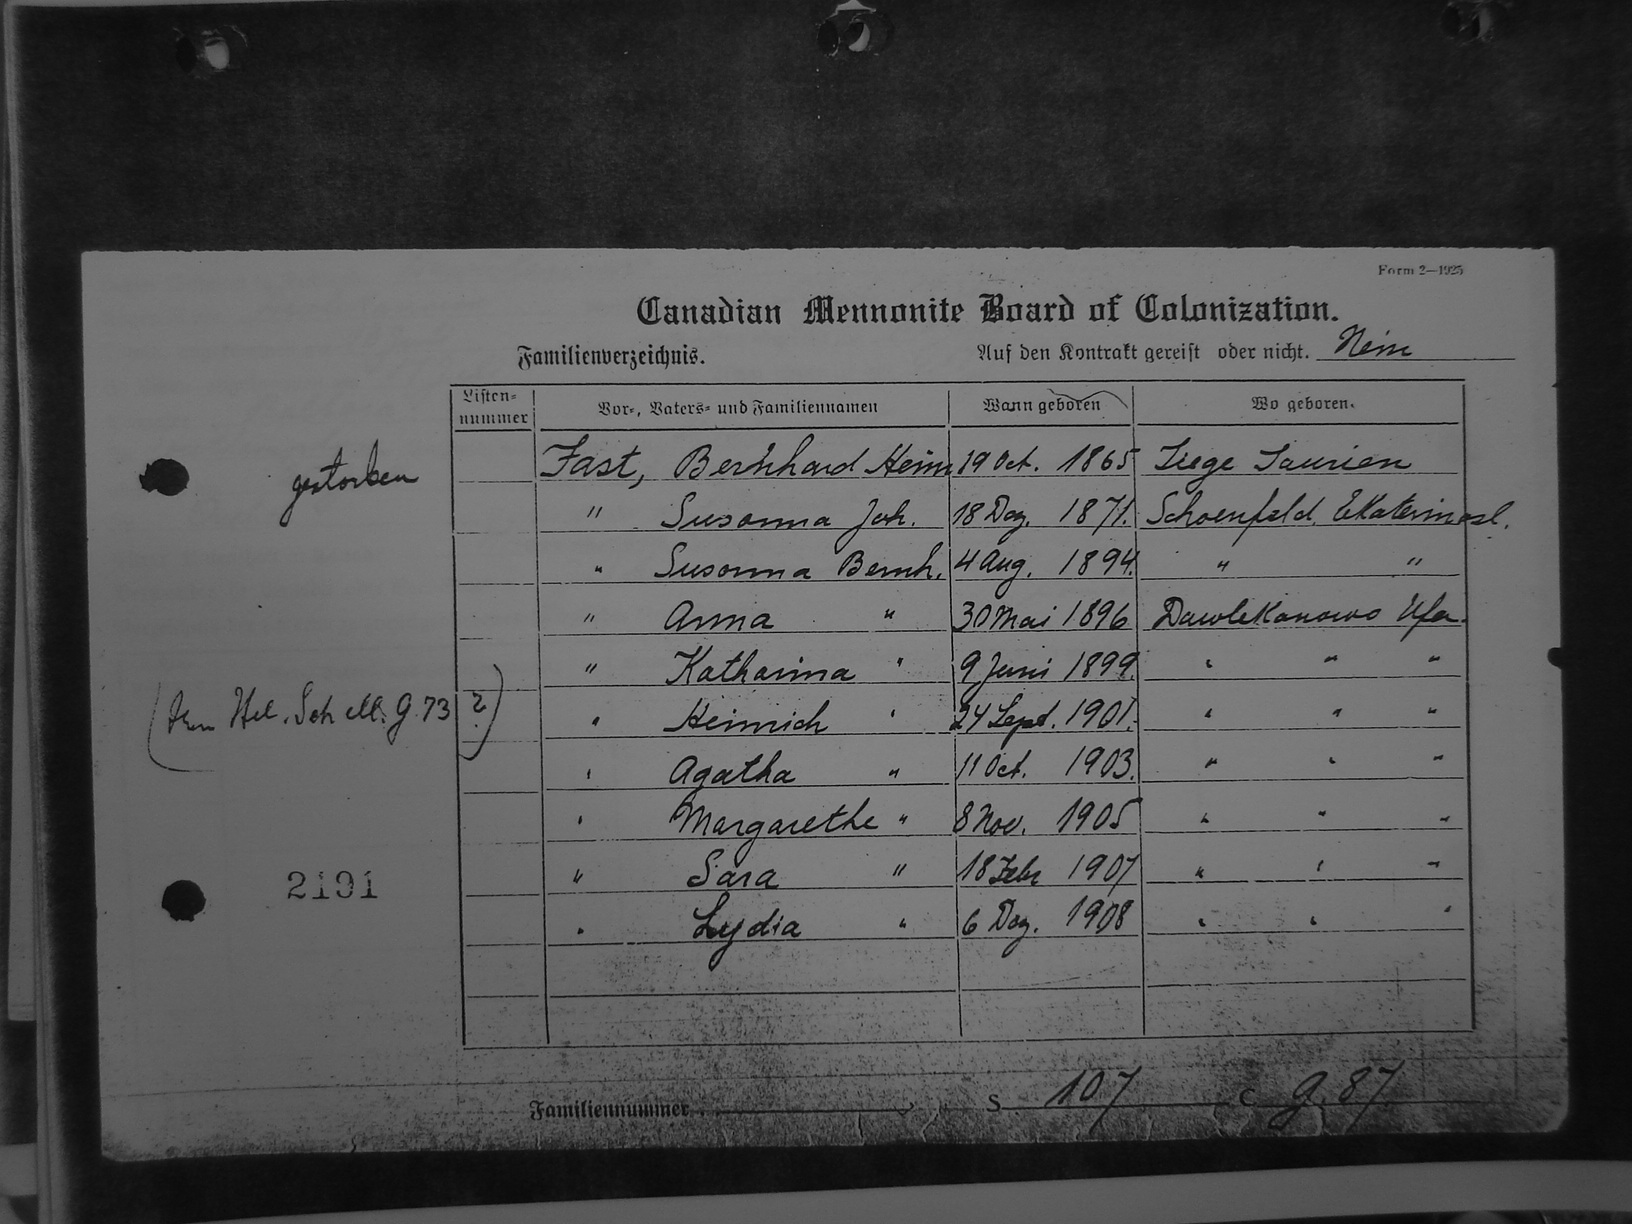 Form 2—1925
Canadian Mennonite Board of Colonization.
Familienverzeichnis. Auf den Kontrakt gereist oder nicht. Nein
Listen-nummer Vor-, Vaters- und Familiennamen Wann geboren Wo geboren.
gestorben Fast, Bernhard Hein 19 Oct. 1865 Liege Taurien
" Susanna Joh. 18 Dez. 1871. Schoenfeld Ekaterinosl.
" Susanna Bernh. 4 Aug. 1894. " "
" Anna " 30 Mai 1896 Dawlekanowo Ufa.
" Katharina " 9 Juni 1899. " " "
(Hel. Sch G 73 ?) " Heinrich " 24 Sept. 1901. " " "
" Agatha " 11 Oct. 1903. " " "
" Margarethe " 8 Nov. 1905 " " "
2191 " Sara " 18 Febr 1907 " " "
" Lydia " 6 Dez. 1908 " " "
Familiennummer S 107 C G. 87